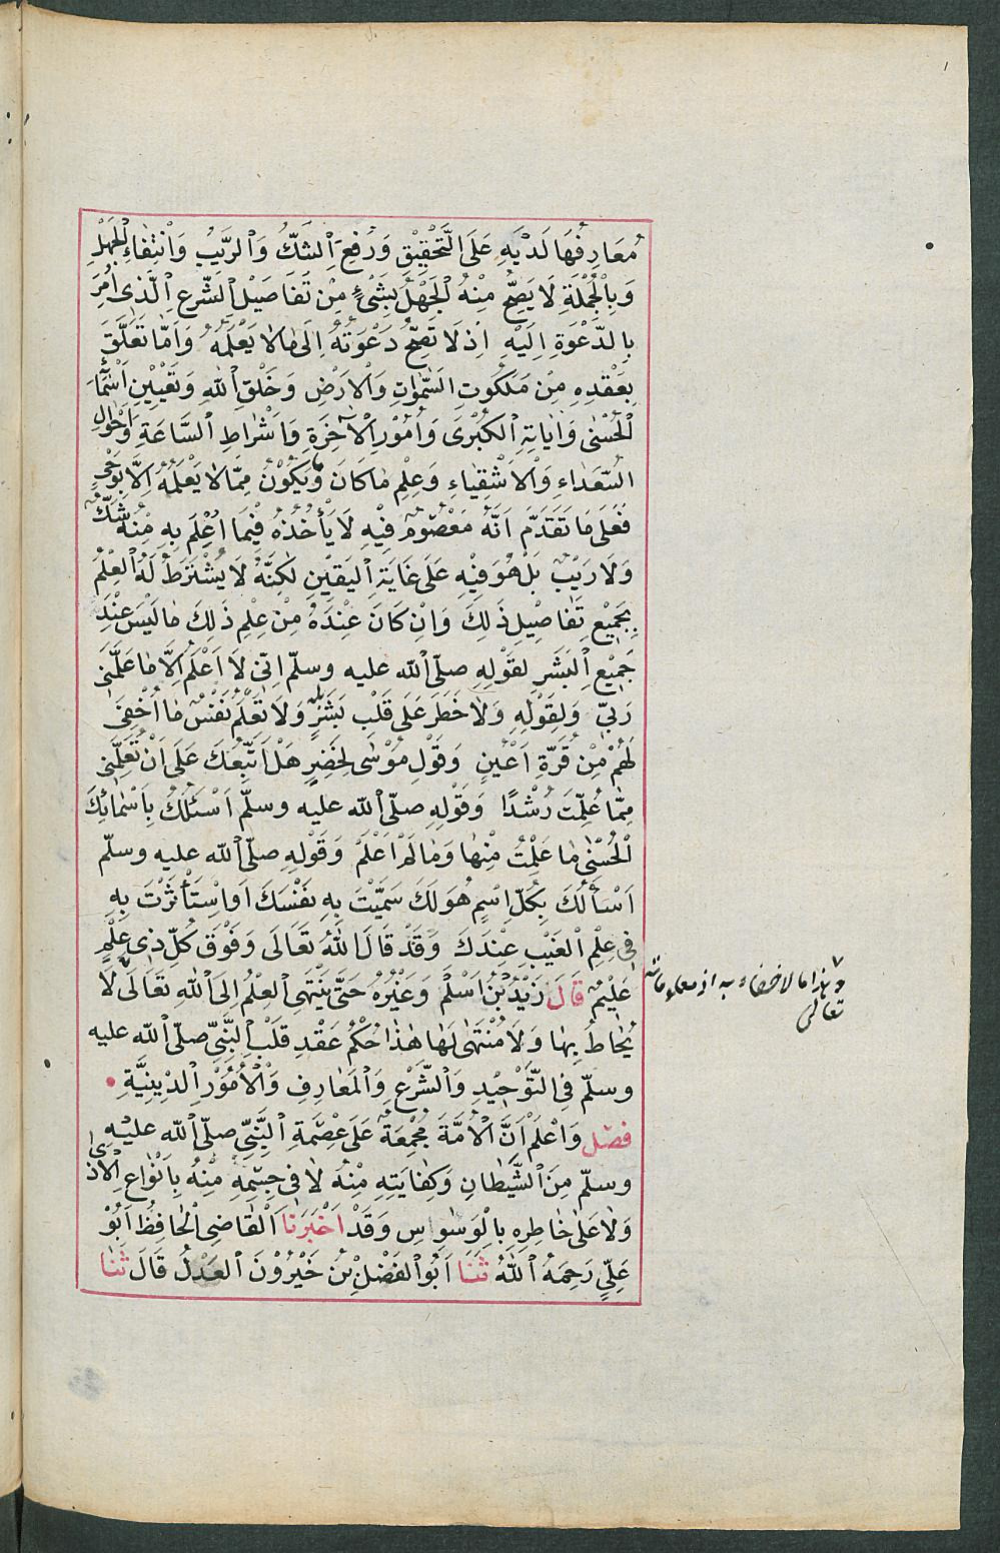 مَعَارِفُهَا لَدَيْهِ عَلَى التَّحْقِيْقِ وَرَفْعِ الشَّكُّ وَالرَّيْبُ وَانْتِفَاءِ الْجَهْلِ
وَبِالْجُمْلَةِ لَا يَصِحُّ مِنْهُ الْجَهْلُ بِشَىْءٍ مِنْ تَفَاصِيْلِ الشَّرْعِ الَّذِى اُمِرَ
بِالدَّعْوَةِ اِلَيْهِ اِذْ لَا تَصِحُّ دَعْوَتُهُ اِلَى مَالَا يَعْلَمُهُ وَاَمَّا تَعَلَّقَ
بِعَقْدِهِ مِنْ مَلَكُوتِ السَّمٰوَاتِ وَالْاَرْضِ وَخَلْقِ اللهِ وَتَعْيِيْنِ اَسْمَاءِ
الْحُسْنٰى وَاٰيَاتِهِ الْكُبْرٰى وَاُمُوْرِ الْاٰخِرَةِ وَاَشْرَاطِ السَّاعَةِ وَاَحْوَالِ
السُّعَدَاءِ وَالْاَشْقِيَاءِ وَعِلْمِ مَاكَانَ وَيَكُوْنُ مِمَّا لَا يَعْلَمُهُ اِلَّا بِوَحْىٍ
فَعَلٰى مَا تَقَدَّمَ اَنَّهُ مَعْصُوْمٌ فِيْهِ لَا يَأْخُذُهُ فِيْمَا اُعْلِمَ بِهِ مِنْهُ شَكٌّ
وَلَا رَيْبٌ بَلْ هُوَ فِيْهِ عَلَى غَايَةِ الْيَقِيْنِ لٰكِنَّهُ لَا يُشْتَرَطُ لَهُ الْعِلْمُ
بِجَمِيْعِ تَفَاصِيْلِ ذٰلِكَ وَاِنْ كَانَ عِنْدَهُ مِنْ عِلْمِ ذٰلِكَ مَا لَيْسَ عِنْدَ
جَمِيْعِ الْبَشَرِ لِقَوْلِهِ صلّى الله عليه وسلّم اِنّى لَا اَعْلَمُ اِلَّا مَا عَلَّمَنِى
رَبِّى وَلِقَوْلِهِ وَلَا خَطَرَ عَلَى قَلْبِ بَشَرٍ وَلَا تَعْلَمُ نَفْسٌ مَا اُخْفِىَ
لَهُمْ مِنْ قُرَّةِ اَعْيُنٍ وَقَوْلِ مُوْسٰى لِخَضِرٍ هَلْ اَتَّبِعُكَ عَلَى اَنْ تُعَلِّمَنِى
مِمَّا عُلِّمْتَ رُشْدًا وَقَوْلِهِ صلّى الله عليه وسلّم اَسْئَلُكَ بِاَسْمَائِكَ
الْحُسْنٰى مَا عَلِمْتُ مِنْهَا وَمَا لَمْ اَعْلَمْ وَقَوْلِهِ صلّى الله عليه وسلّم
اَسْأَلُكَ بِكُلِّ اسْمٍ هُوَ لَكَ سَمَّيْتَ بِهِ نَفْسَكَ اَوِ اسْتَأْثَرْتَ بِهِ
فِى عِلْمِ الْغَيْبِ عِنْدَكَ وَقَدْ قَالَ اللهُ تَعَالٰى وَفَوْقَ كُلِّ ذِى عِلْمٍ
عَلِيْمٌ قَالَ زَيْدُ بْنُ اَسْلَمَ وَغَيْرُهُ حَتّٰى يَنْتَهِىَ الْعِلْمُ اِلَى اللهِ تَعَالٰى لَا
وَهٰذَا مَا لَا خَفَاءَ بِهِ اِذ مَعْلُومَاتُه
تعالى
يُحَاطُ بِهَا وَلَا مُنْتَهٰى لَهَا هٰذَا حُكْمُ عَقْدِ قَلْبِ النَّبِىِّ صلّى الله عليه
وسلّم فِى التَّوْحِيْدِ وَالشَّرْعِ وَالْمَعَارِفِ وَالْاُمُوْرِ الدِّيْنِيَّةِ
فصل وَاعْلَمْ اَنَّ الْاُمَّةَ مُجْمِعَةٌ عَلَى عِصْمَةِ النَّبِىِّ صلّى الله عليه
وسلّم مِنَ الشَّيْطَانِ وَكِفَايَتِهِ مِنْهُ لَا فِى جِسْمِهِ مِنْهُ بِاَنْوَاعِ الْاَذٰى
وَلَا عَلٰى خَاطِرِهِ بِالْوَسَوِاسِ وَقَدْ اَخْبَرَنَا الْقَاضِى الْحَافِظُ اَبُوْ
عَلِىٍّ رَحِمَهُ اللهُ ثَنَا اَبُو الْفَضْلِ بْنُ خَيْرُوْنَ الْعَدْلُ قَالَ ثَنَا